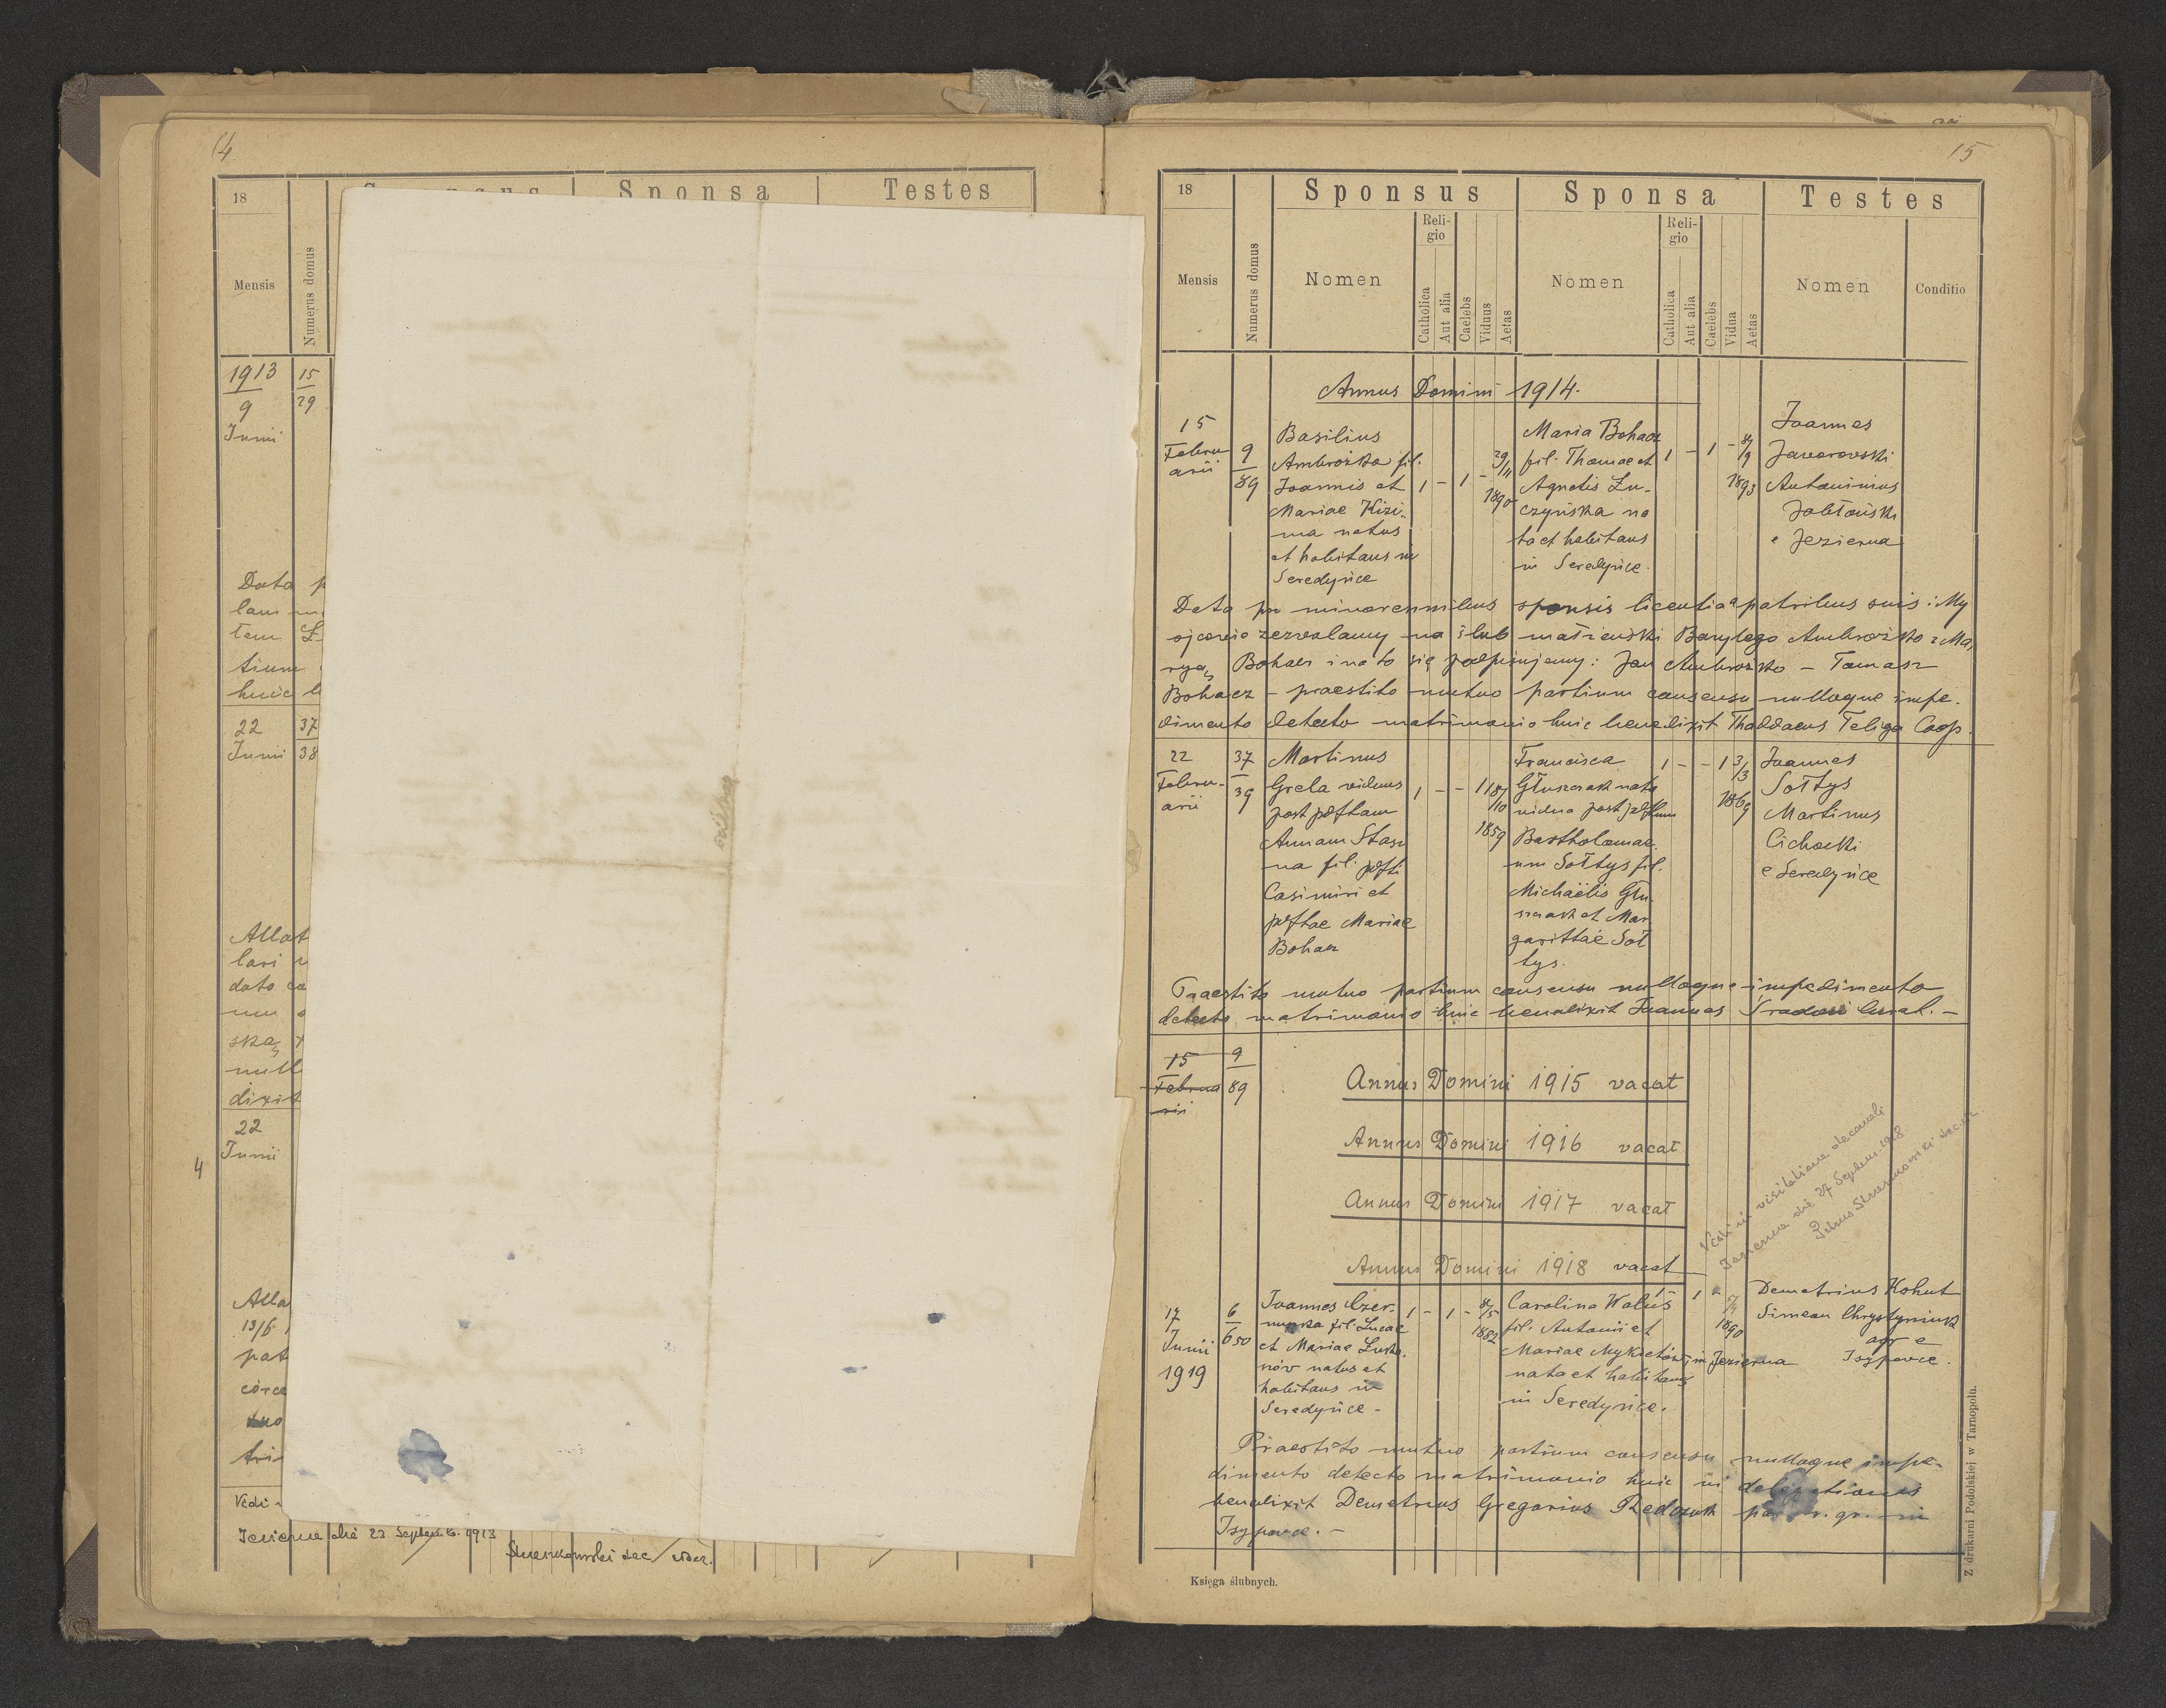 14
18
Sponsa
Testes
Mensis
Numerus domus
1913
9
Junii
15
29
Data
lam
tem
tium
huic
22
Junii
37
38
Allat
lari
dato
skę
null
dixit
22
Junii
4
Alla
13/6
pat
córce
tri
Vidi
Jezierna die 23 Septemb. 1913
15
18
Sponsus
Sponsa
Testes
Mensis
Numerus domus
Nomen
Religio
Catholica
Aut alia
Caelebs
Viduus
Aetas
Nomen
Religio
Catholica
Aut alia
Caelebs
Vidua
Aetas
Nomen
Conditio
Annus Domini 1914.
15
Februarii
9
89
Basilius
Ambrożko fil.
Joannis et
Mariae Kizi-
ma natus
et habitans in
Seredyńce
1 - 1 - 29/11 1890
Maria Bohacz
fil. Thomae et
Agnetis Łu-
czyńska na
ta et habitans
in Seredyńce.
1 - 1 - 8/9 1893
Joannes
Jaworowski
Antoninus
Jabłoński
e Jezierna
Data pro minorennibus sponsis licentia a patribus suis: My
ojcowie zezwalamy na ślub małżeński Bazylego Ambrożko z Ma-
ryą Bohacz i na to się podpisujemy: Jan Ambrożko – Tomasz
Bohacz – praestito mutuo partium consensu nulloque impe-
dimento detecto matrimonio huic benedixit Thaddaeus Teliga Coop.
22
Februarii
37
39
Martinus
Greta viduus
post pdeftam
Annam Stasi
na fil. pdefti
Casimiri et
pdeftae Mariae
Bohacz
1 - - 1
10
1859
Francisca
nata
vidua post pdeftum
Bartholomae-
um Sołtys fil.
Michaëlis Głu-
szczak et Mar
garittae Soł
tys.
1 - - 1 3/3 1869
Joannes
Sołtys
Martinus
Cichocki
e Seredyńce
Praestito mutuo partium consensu nulloque impedimento
detecto matrimonio huic benedixit Joannes
15
Februarii
9
89
Annus Domini 1915 vacat
Annus Domini 1916 vacat
Annus Domini 1917 vacat
Annus Domini 1918 vacat
Vidi in visitatione decanali
Jezierna die 27 Septem. 1918
17
Junii
1919
6
650
Joannes Czer-
fil. Lucae
et Mariae
nów natus et
habitans in
Seredyńce -
1 - 1 - 8/5 1882
Carolina Waluś
fil. Antonii et
Mariae Mykietów in Jezierna
nata et habitans
in Seredyńce.
1890
Demetrius Kohut
Simeon Chrystyniuk
agr e
Isypowce.
Praestito mutuo partium consensu nulloque impe-
dimento detecto matrimonio huic in delegationis
benedixit Demetrius Gregorius gr. in
Isypowce. –
Księga ślubnych.
Z drukarni Podolskiej w Tarnopolu.